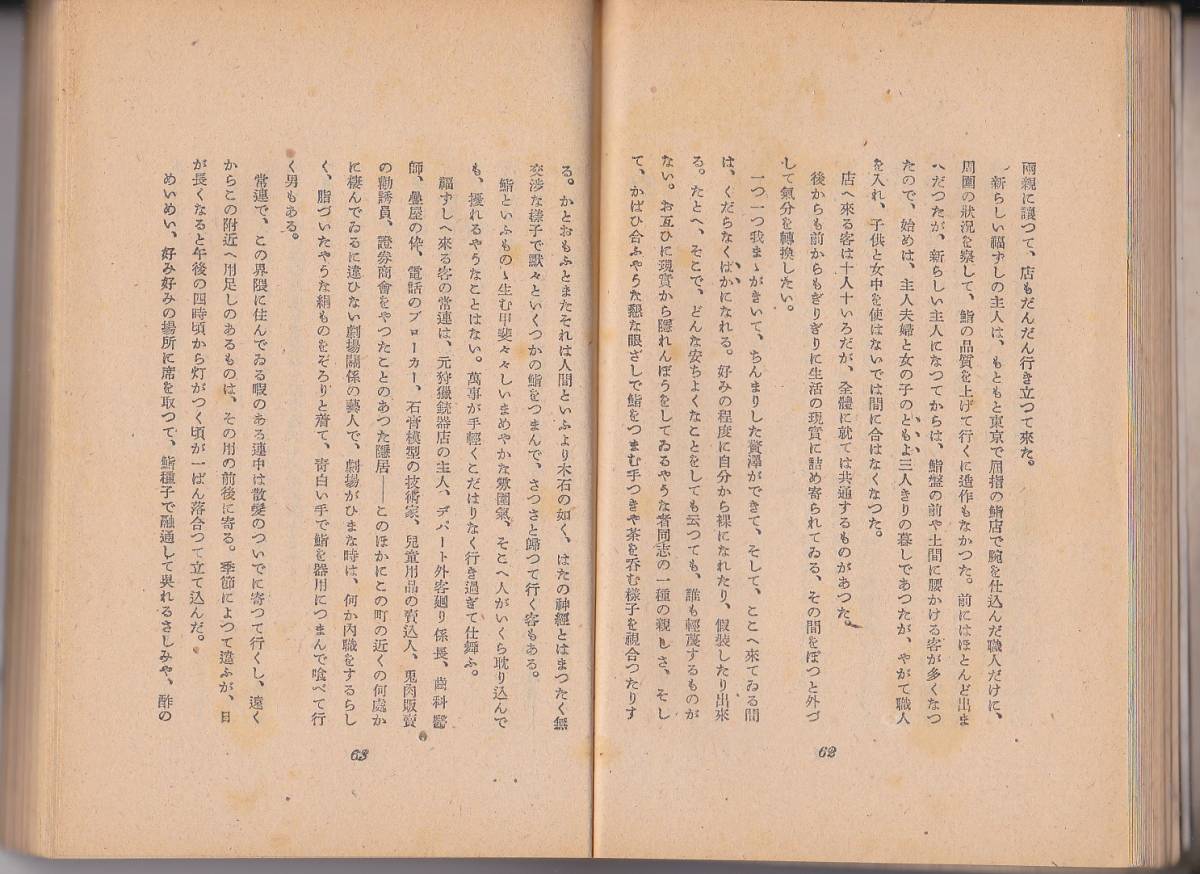 両親に讓つて、店もだんだん行き立つて來た。
新らしい福ずしの主人は、もともと東京で屈指の鮨店で腕を仕込んだ職人だけに、
周圍の狀況を察して、鮨の品質を上げて行くに造作もなかつた。前にはほとんど出ま
へだつたが、新らしい主人になつてからは、鮨盤の前や土間に腰かける客が多くなつ
たので、始めは、主人夫婦と女の子のともよ三人きりの暮しであつたが、やがて職人
を入れ、子供と女中を使はないでは間に合はなくなつた。
店へ來る客は十人十いろだが、全體に就ては共通するものがあつた。
後からも前からもぎりぎりに生活の現實に詰め寄られてゐる、その間をぽつと外づ
して氣分を轉換したい。
一つ一つ我まゝがきいて、ちんまりした贅澤ができて、そして、ここへ來てゐる間
は、くだらなくばかになれる。好みの程度に自分から裸になれたり、假裝したり出來
る。たとへ、そこで、どんな安ちよくなことをしても云つても、誰も輕蔑するものが
ない。お互ひに現實から隱れんぼうをしてゐるやうな者同志の一種の親しさ、そし
て、かばひ合ふやうな懇な眼ざしで鮨をつまむ手つきや茶を呑む樣子を視合つたりす
62
る。かとおもふとまたそれは人間といふより木石の如く、はたの神經とはまつたく無
交渉な樣子で默々といくつかの鮨をつまんで、さつさと歸つて行く客もある。
鮨といふものゝ生む甲斐々々しいまめやかな雰圍氣、そこへ人がいくら耽り込んで
も、擾れるやうなことはない。萬事が手輕くこだはりなく行き過ぎて仕舞ふ。
福ずしへ來る客の常連は、元狩獵銃器店の主人、デパート外客廻り係長、齒科醫
師、疊屋の伜、電話のブローカー、石膏模型の技術家、兒童用品の賣込人、兎肉販賣
の勸誘員、證券商會をやつたことのあつた隱居――このほかにこの町の近くの何處か
に棲んでゐるに違ひない劇場關係の藝人で、劇場がひまな時は、何か內職をするらし
く、脂づいたやうな絹ものをぞろりと着て、靑白い手で鮨を器用につまんで喰べて行
く男もある。
常連で、この界隈に住んでゐる暇のある連中は散髮のついでに寄つて行くし、遠く
からこの附近へ用足しのあるものは、その用の前後に寄る。季節によつて違ふが、日
が長くなると午後の四時頃から灯がつく頃が一ばん落合つて立て込んだ。
めいめい、好み好みの場所に席を取つて、鮨種子で融通して吳れるさしみや、酢の
63